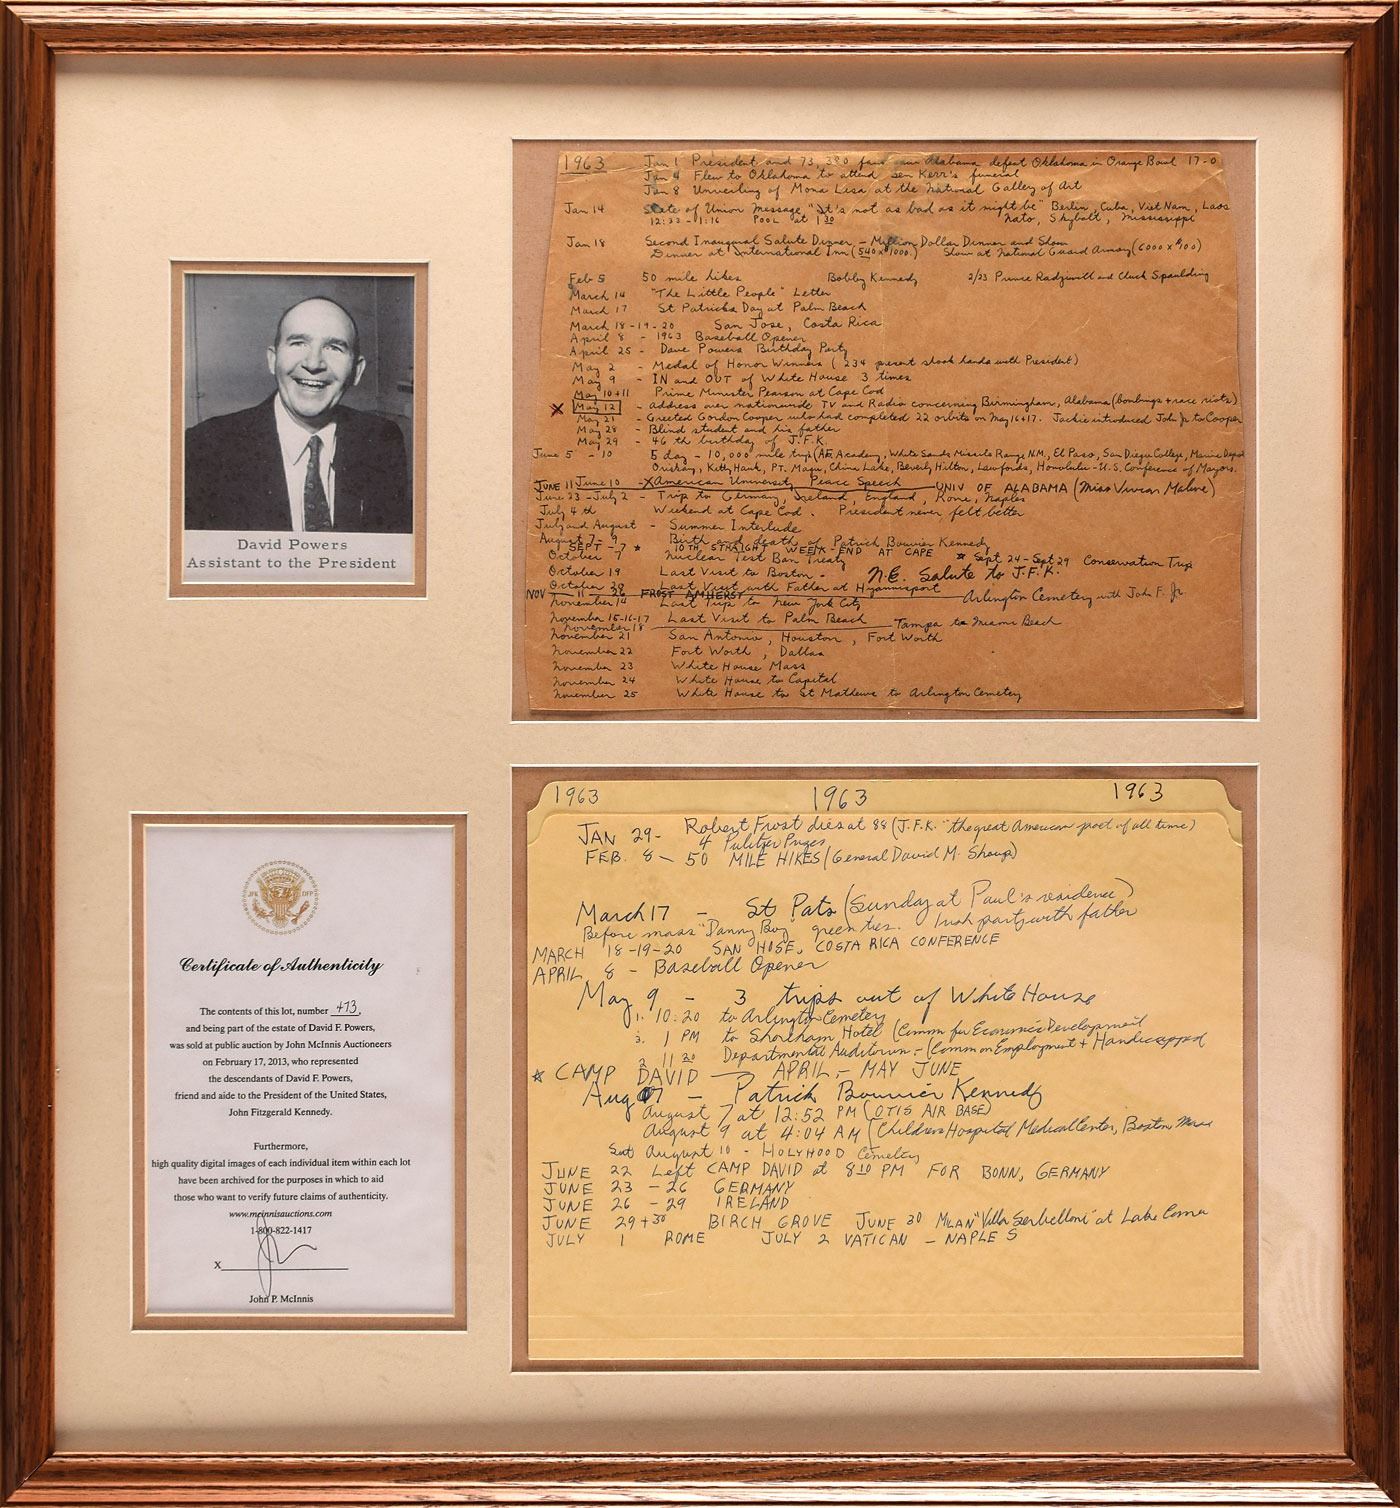 David Powers
Assistant to the President
1963 Jan 1 President and 73,380 fans saw Alabama defeat Oklahoma in Orange Bowl 17-0
Jan 4 Flew to Oklahoma to attend Sen Kerr's funeral
Jan 8 Unveiling of Mona Lisa at the National Gallery of Art
Jan 14 State of Union Message "It's not as bad as it might be" Berlin, Cuba, Viet Nam, Laos
12:33 - 1:16 POOL at 1 30 Nato, Skybolt, Mississippi
Jan 18 Second Inaugural Salute Dinner - Million Dollar Dinner and Show
Dinner at International Inn (540 x $1000.) Show at National Guard Armory (6000 x $100)
Feb 5 50 mile hikes Bobby Kennedy 2/23 Prince Radziwill and Chuck Spaulding
March 14 "The Little People" Letter
March 17 St Patricks Day at Palm Beach
March 18-19-20 San Jose, Costa Rica
April 8 - 1963 Baseball Opener
April 25 - Dave Powers Birthday Party
May 2 - Medal of Honor Winners (234 present shook hands with President)
May 9 - IN and OUT of White House 3 times
May 10+11 Prime Minister Pearson at Cape Cod
X May 12 - Address over nationwide TV and Radio concerning Birmingham, Alabama (bombings + race riots)
May 21 - Greeted Gordon Cooper who had completed 22 orbits on May 16+17. Jackie introduced John Jr to Cooper
May 28 - Blind student and his father
May 29 - 46 th birthday of J.F.K.
June 5 - 10 5 day - 10,000 mile trip (AF Academy, White Sands Missile Range N.M., El Paso, San Diego College, Marine Depot
Oriskany, Kitty Hawk, PT. Magu, China Lake, Beverly Hilton, Lawfords, Honolulu - U.S. Conference of Mayors.
JUNE 11 June 10 - X American University Peace Speech UNIV OF ALABAMA (Miss Vivian Malone)
June 23 - July 2 - Trip to Germany, Ireland, England, Rome, Naples
July 4th Weekend at Cape Cod. President never felt better
July and August - Summer Interlude
August 7 - 9 Birth and death of Patrick Bouvier Kennedy
SEPT - 7 * 10TH STRAIGHT WEEK-END AT CAPE * Sept 24 - Sept 29 Conservation Trip
October 7 Nuclear Test Ban Treaty
October 19 Last Visit to Boston - N.E. Salute to J.F.K.
October 20 Last Visit with Father at Hyannisport
NOV 11 26 FROST AMHERST Arlington Cemetery with John F. Jr.
November 14 Last Trip to New York City
November 15-16-17 Last Visit to Palm Beach
November 18 Tampa to Miami Beach
November 21 San Antonio, Houston, Fort Worth
November 22 Fort Worth, Dallas
November 23 White House Mass
November 24 White House to Capital
November 25 White House to St Mathews to Arlington Cemetery
JFK DFP
Certificate of Authenticity
The contents of this lot, number 473,
and being part of the estate of David F. Powers,
was sold at public auction by John McInnis Auctioneers
on February 17, 2013, who represented
the descendants of David F. Powers,
friend and aide to the President of the United States,
John Fitzgerald Kennedy.
Furthermore,
high quality digital images of each individual item within each lot
have been archived for the purposes in which to aid
those who want to verify future claims of authenticity.
www.mcinnisauctions.com
1-800-822-1417
X
John P. McInnis
1963 1963 1963
JAN 29- Robert Frost dies at 88 (J.F.K. "the great American poet of all time)
4 Pulitzer Prizes
FEB. 8 - 50 MILE HIKES (General David M. Shoup)
March 17 - St Pats (Sunday at Paul's residence)
Before mass "Danny Boy" green ties. Irish party with father
MARCH 18-19-20 SAN HOSE, COSTA RICA CONFERENCE
APRIL 8 - Baseball Opener
May 9 - 3 trips out of White House
1. 10:20 to Arlington Cemetery
3. 1 PM to Shoreham Hotel (Comm for Economic Development
2 11 20 Departmental Auditorium - (Comm on Employment + Handicapped
* CAMP DAVID - APRIL - MAY JUNE
Aug 7 - Patrick Bouvier Kennedy
August 7 at 12:52 PM (OTIS AIR BASE)
August 9 at 4:04 AM (Childrens Hospital Medical Center, Boston Mass
Sat August 10 - HOLYHOOD Cemetery
JUNE 22 Left CAMP DAVID at 8 10 PM FOR BONN, GERMANY
JUNE 23 - 26 GERMANY
JUNE 26 - 29 IRELAND
JUNE 29+30 BIRCH GROVE JUNE 30 MILAN "Villa Serbelloni" at Lake Como
JULY 1 ROME JULY 2 VATICAN - NAPLES